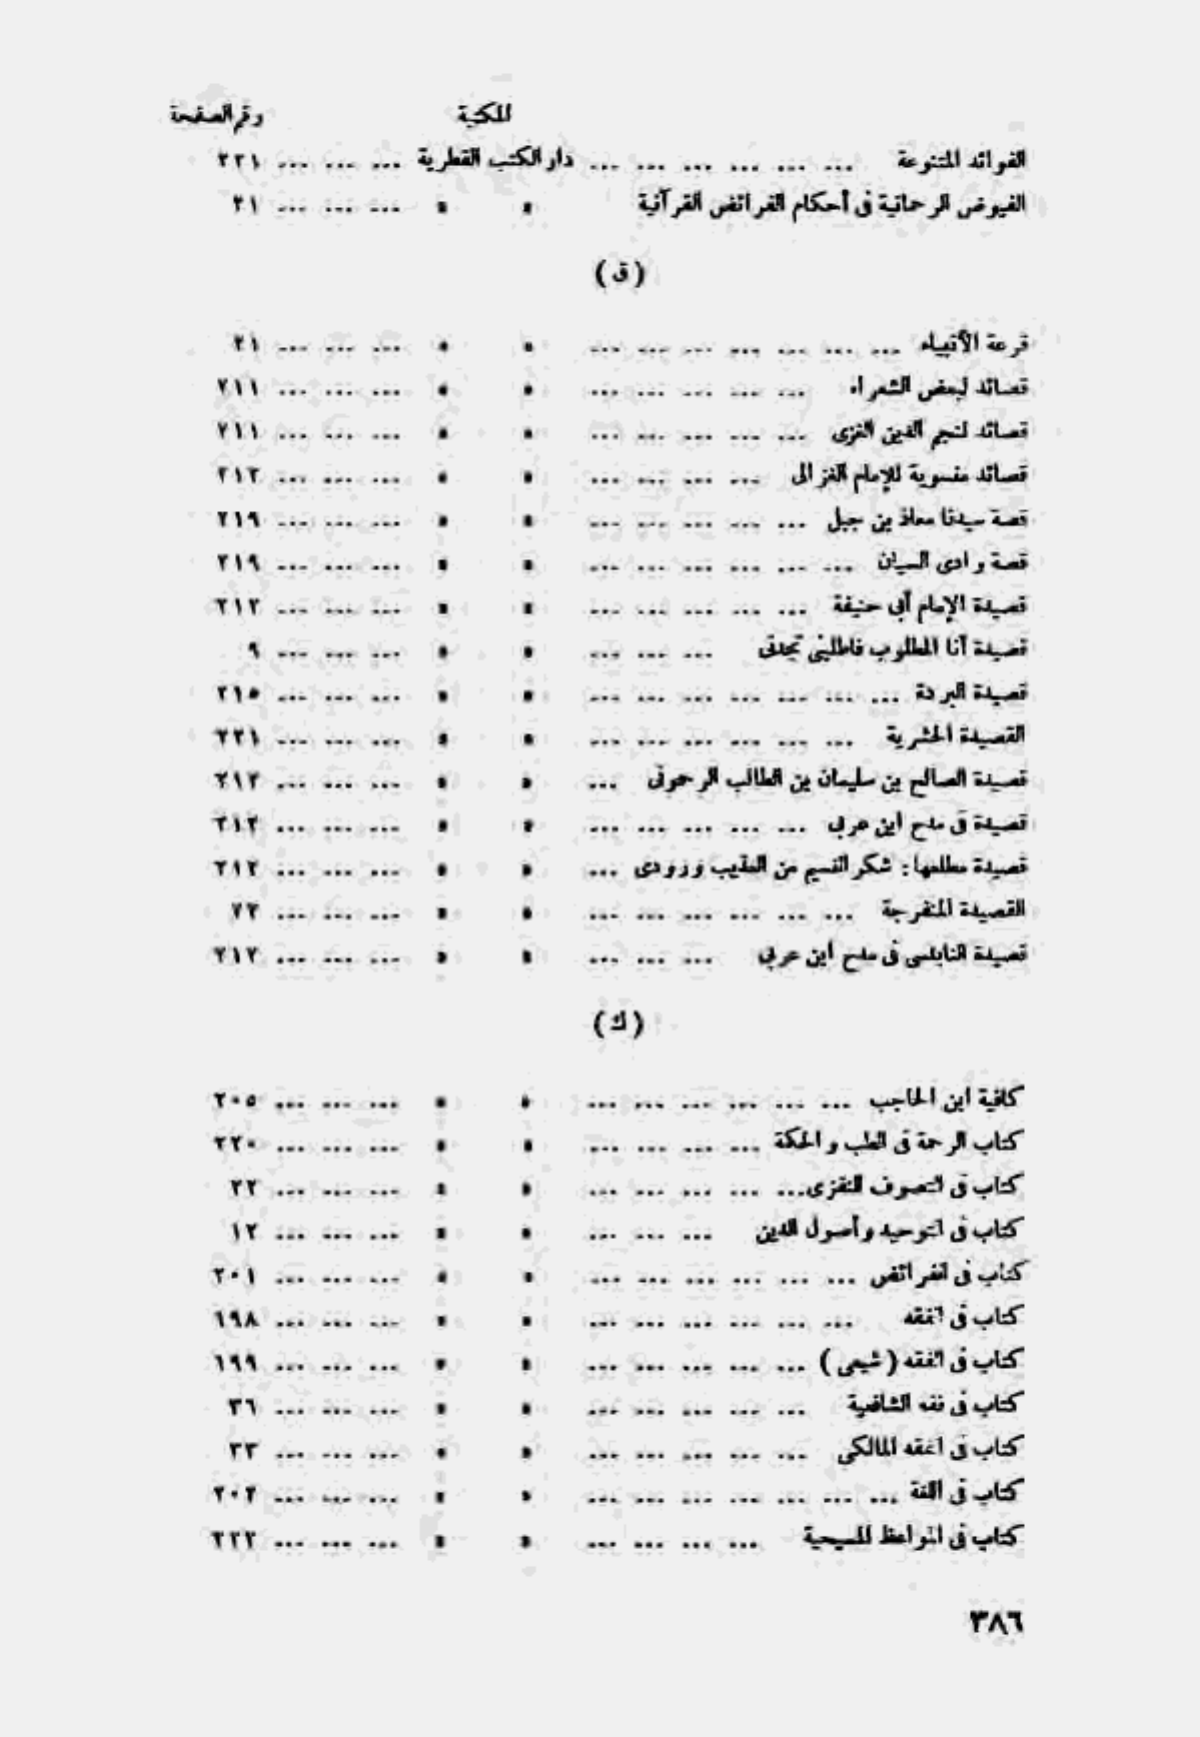 المكتبة رقم الصفحة
الفوائد المتنوعة ... ... ... ... ... ... دار الكتب القطرية ... ... ... ٢٢١
الفيوض الرحمانية فى أحكام الفرائض القرآنية » » ... ... ... ٢١
( ق )
قرعة الأنبياء ... ... ... ... ... ... ... » » ... ... ... ٢١
قصائد لبعض الشعراء ... ... ... ... ... » » ... ... ... ٢١١
قصائد لنجم الدين الغزى ... ... ... ... ... » » ... ... ... ٢١١
قصائد منسوبة للإمام الغزالى ... ... ... ... » » ... ... ... ٢١٢
قصة سيدنا معاذ بن جبل ... ... ... ... ... » » ... ... ... ٢١٩
قصة وادى السيان ... ... ... ... ... ... » » ... ... ... ٢١٩
قصيدة الإمام أبى حنيفة ... ... ... ... ... » » ... ... ... ٢١٢
قصيدة أنا المطلوب فاطلبنى تجدنى ... ... ... » » ... ... ... ٩
قصيدة البردة ... ... ... ... ... ... ... » » ... ... ... ٢١٥
القصيدة ... ... ... ... ... ... » » ... ... ... ٢٢١
قصيدة الصالح بن سليمان بن الطالب الرحمونى ... » » ... ... ... ٢١٢
قصيدة فى مدح ابن عربى ... ... ... ... ... » » ... ... ... ٢١٢
قصيدة مطلعها : شكر النسيم من وزودى ... » » ... ... ... ٢١٢
القصيدة المنفرجة ... ... ... ... ... ... » » ... ... ... ٢٢
قصيدة النابلسى فى مدح ابن عربى ... ... ... » » ... ... ... ٢١٢
( ك )
كافية ابن الحاجب ... ... ... ... ... ... » » ... ... ... ٢٠٥
كتاب الرحمة فى الطب والحكمة ... ... ... ... » » ... ... ... ٢٢٠
كتاب فى التصوف ... ... ... ... ... » » ... ... ... ٢٢
كتاب فى التوحيد وأصول الدين ... ... ... » » ... ... ... ١٢
كتاب فى الفرائض ... ... ... ... ... ... » » ... ... ... ٢٠١
كتاب فى الفقه ... ... ... ... ... ... » » ... ... ... ١٩٨
كتاب فى الفقه ( شيعى ) ... ... ... ... ... » » ... ... ... ١٩٩
كتاب فى فقه الشافعية ... ... ... ... ... » » ... ... ... ٣٦
كتاب فى الفقه المالكى ... ... ... ... ... » » ... ... ... ٣٣
كتاب فى اللغة ... ... ... ... ... ... ... » » ... ... ... ٢٠٢
كتاب فى المواعظ المسيحية ... ... ... ... » » ... ... ... ٢٢٢
٣٨٦